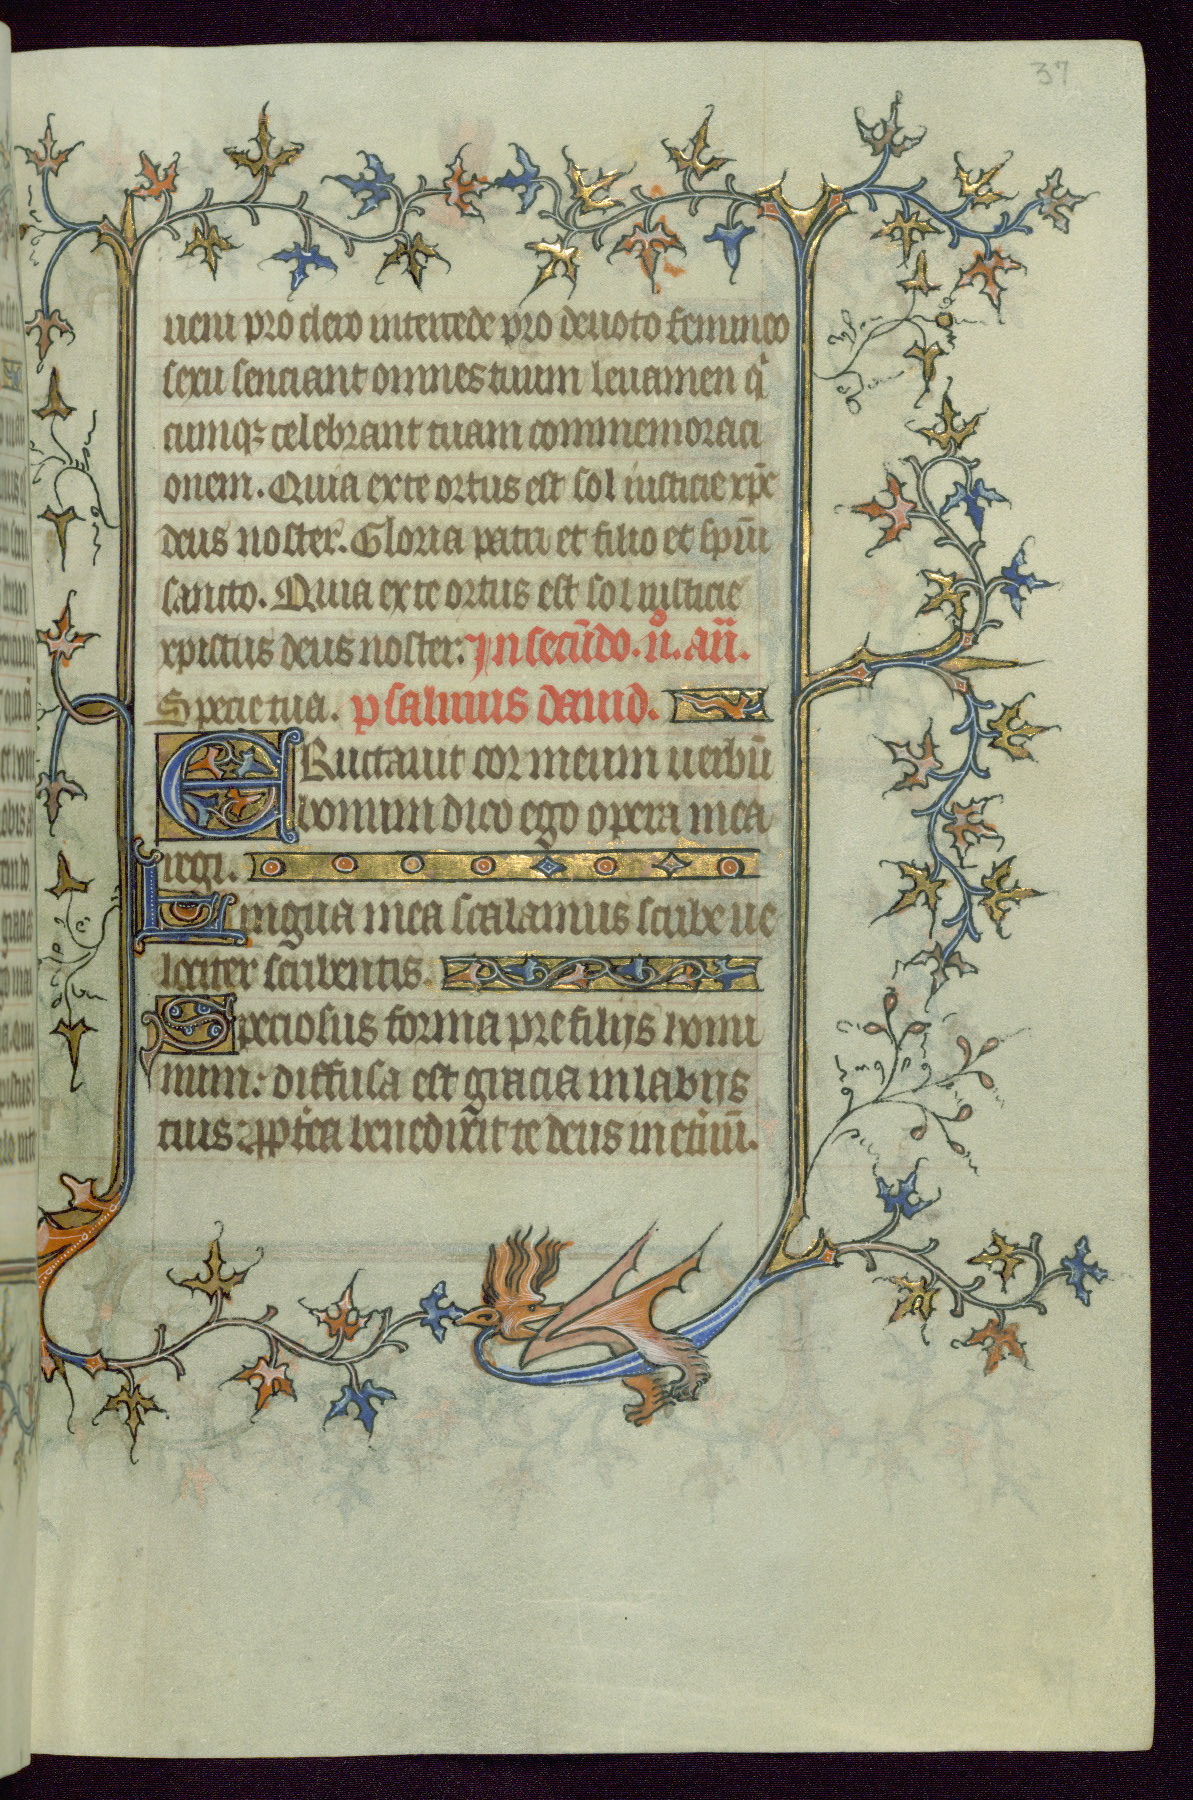 37
ueni pro clero intercede pro deuoto femineo
sexu senciant omnes tuum leuamen q̇
cumqꝫ celebrant tuam commemoraci
onem. Quia ex te ortus est sol iusticie xp̄c
deus noster. Gloria patri et filio et spūi
sancto. Quia ex te ortus est sol iusticie
xpistus deus noster: In secūdo. n̊. añ.
Specie tua. psalmus dauid.
ERuctauit cor meum uerbū
bonum dico ego opera mea
regi.
Lingua mea scalamus scribe ue
lociter scribentis.
Speciosus forma pre filijs homi
num: diffusa est gracia in labijs
tuis ꝓpt̾ea benedixit te deus in et̾nū.